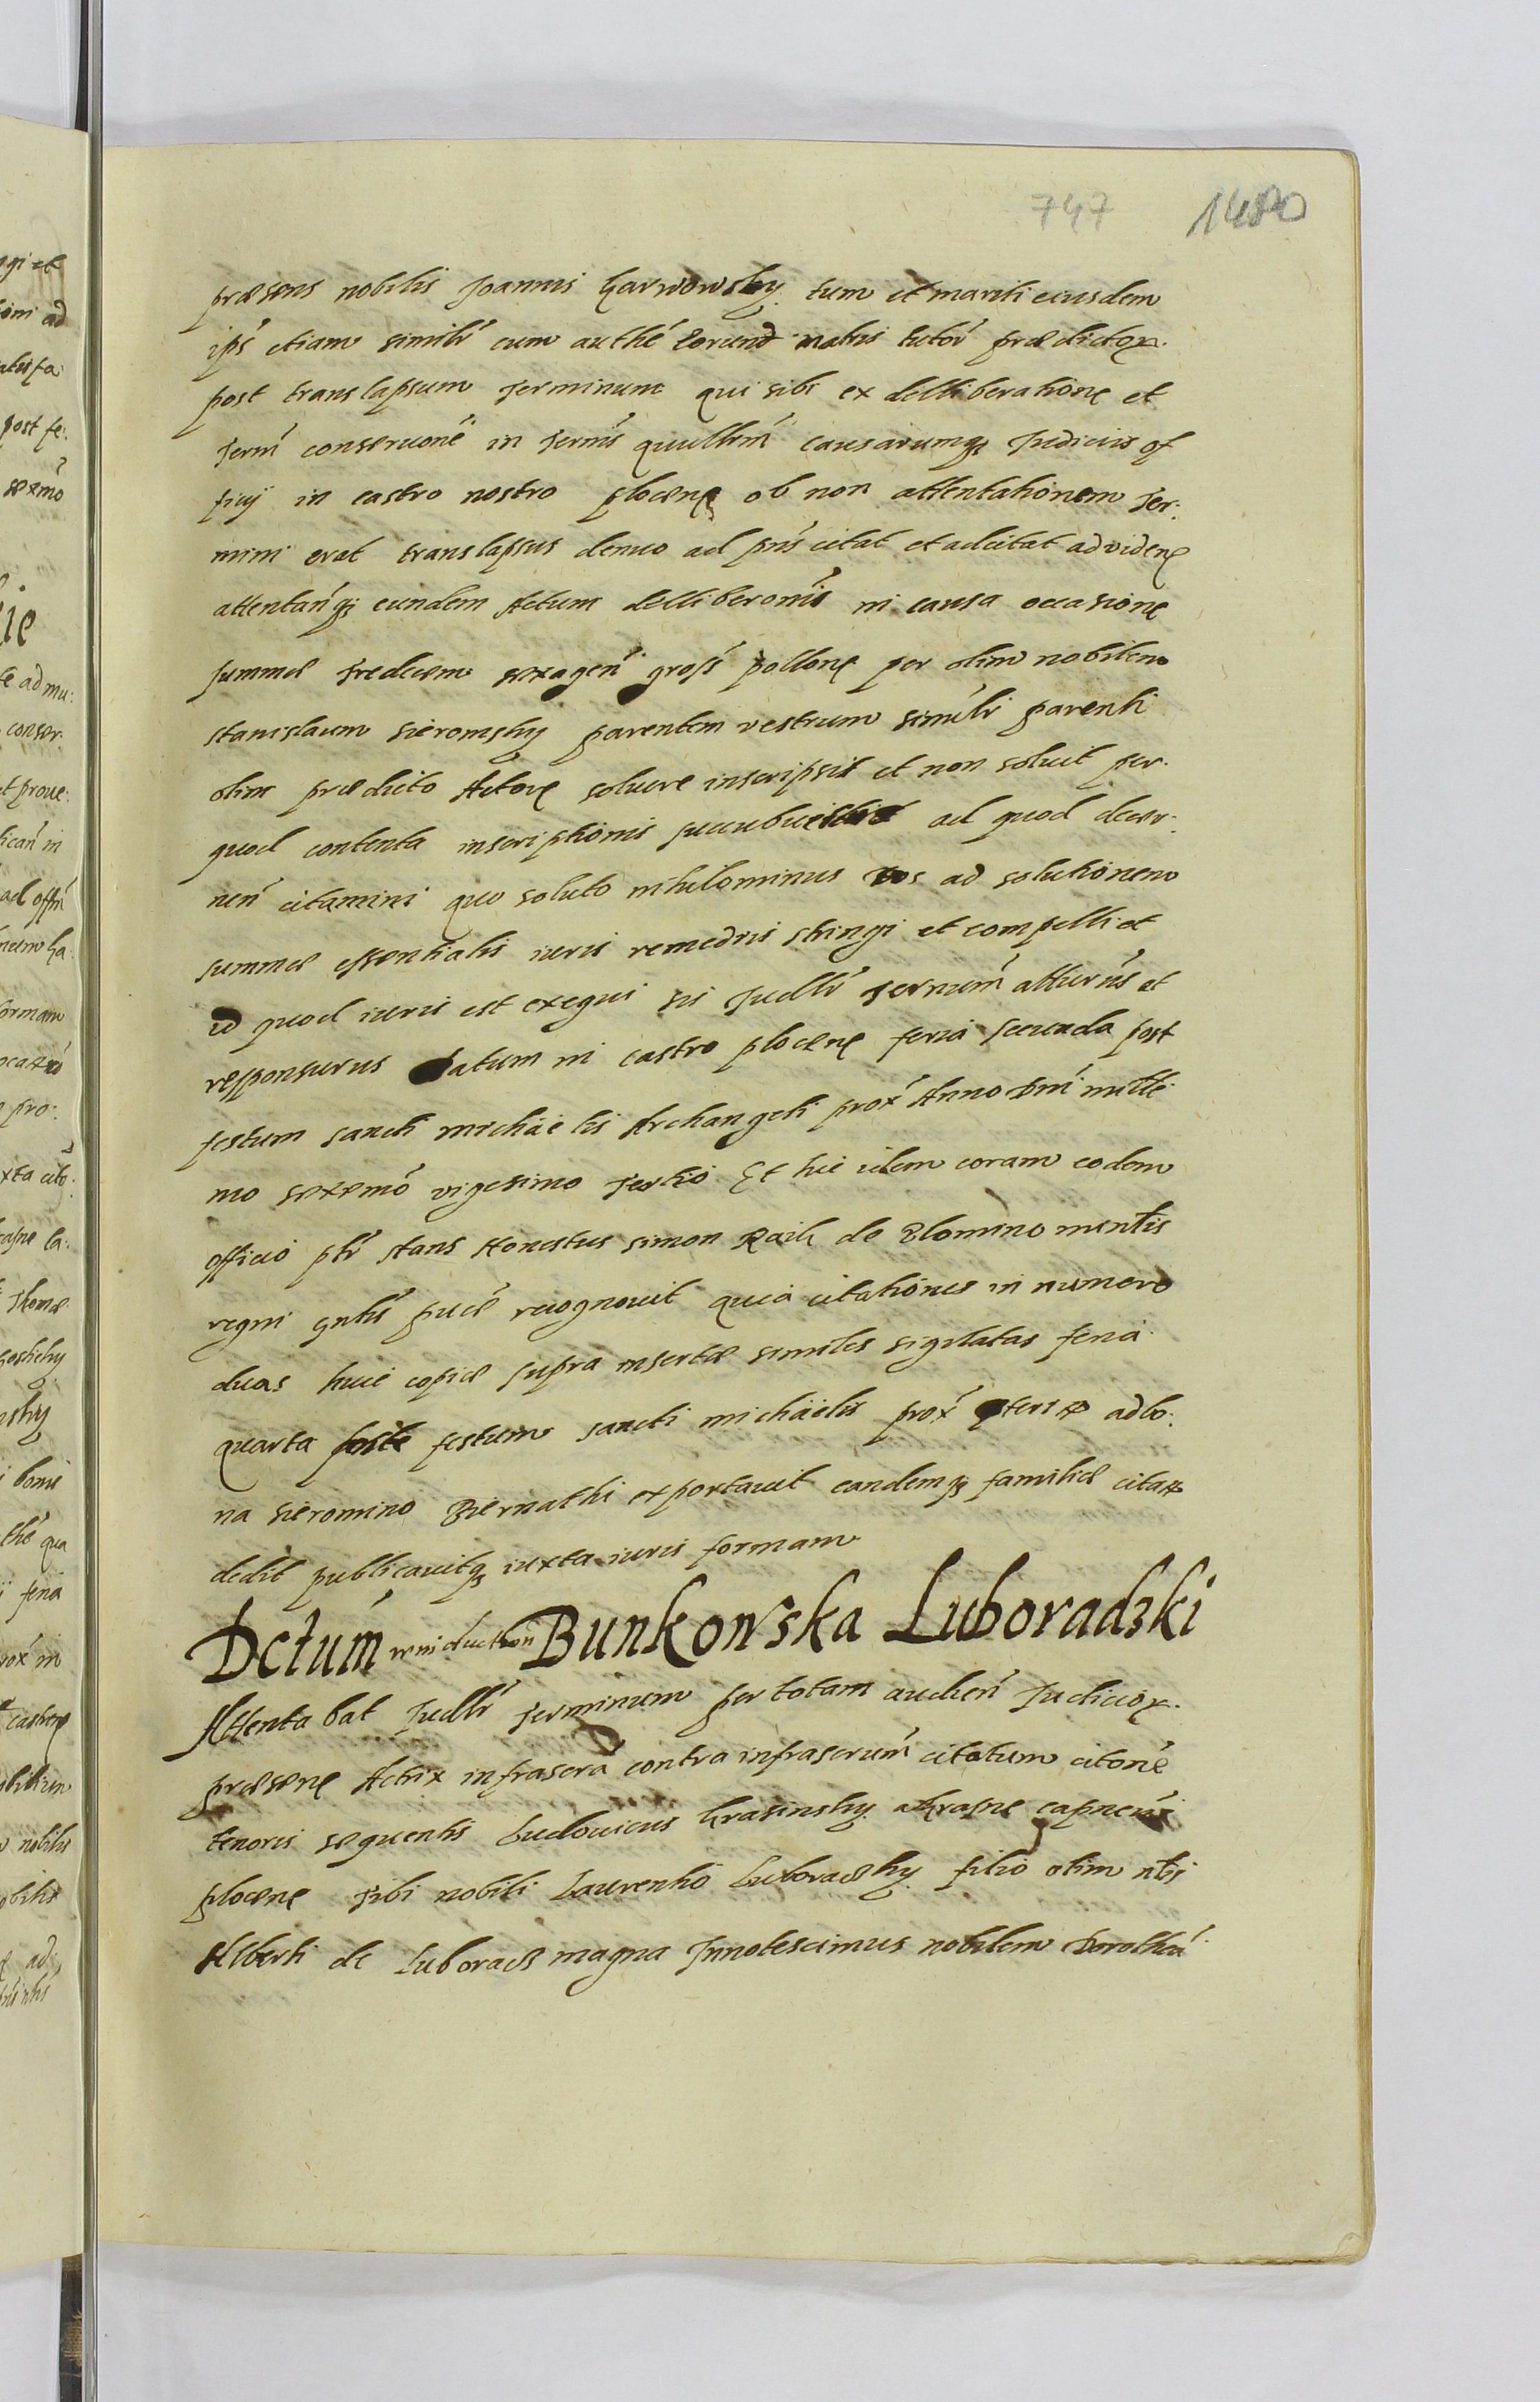 747 1480
præsens nobilis Joannis Garwowsky tum et mariti eiusdem
ips etiam similr cum authe Eorund natus tutor prædictor
post translapsum Terminum qui sibi ex delliberatione et
Term conseruone in Termis quullrm causarumq Judicius of
ficij in castro nostro plocen ob non attentationem Ter:
mini erat translapsus denuo ad pns citat et adcitat ad viden
attentanq eundem Actum delliberonis in causa occasione
summæ tredecem sexagen gross pollon per olim nobilem
stanislaum sieromsky parentem vestrum similr parenti
olim prædicto Actore soluere inscripsit et non soluit per
quod contenta inscriptionis ad quod decer:
nen citamini quo soluto nihilominus vos ad solutionem
summæ essentialis iuris remediis stringi et compelli et
id quod iuris est exequi sis Judlr Termin atturus et
responsurus Datum in castro plocen feria secunda post
festum sancti michäelis Archangeli prox Anno Dni mille
mo sexcmo vigesimo tertio Et hic idem coram eodem
officio plr stans Honestus simon Raik de Blomino mintlis
regni gnlis pucæ recognouit quia citationes in numero
duas huic copiæ supra insertæ similes sigilatas feria
quarta poste festum sancti michäelis prox adbo:
na sieromino Biernathi exportauit eandemq familiæ citat
dedit publicauitq iuxta iuris formam
Dctum Bunkowska Luboradzki
Attentabat Judlr Terminum per totam audien Judicior
præsens Actrix infrascra contra infrascrum citatum citone
tenoris sequentis Ludouicus Krasinsky a Krasne capneus
plocen Tibi nobili Laurentio Luboradzky filio olim nlis
Alberti de Luboradz magna Innotescimus nobilem Dorothea